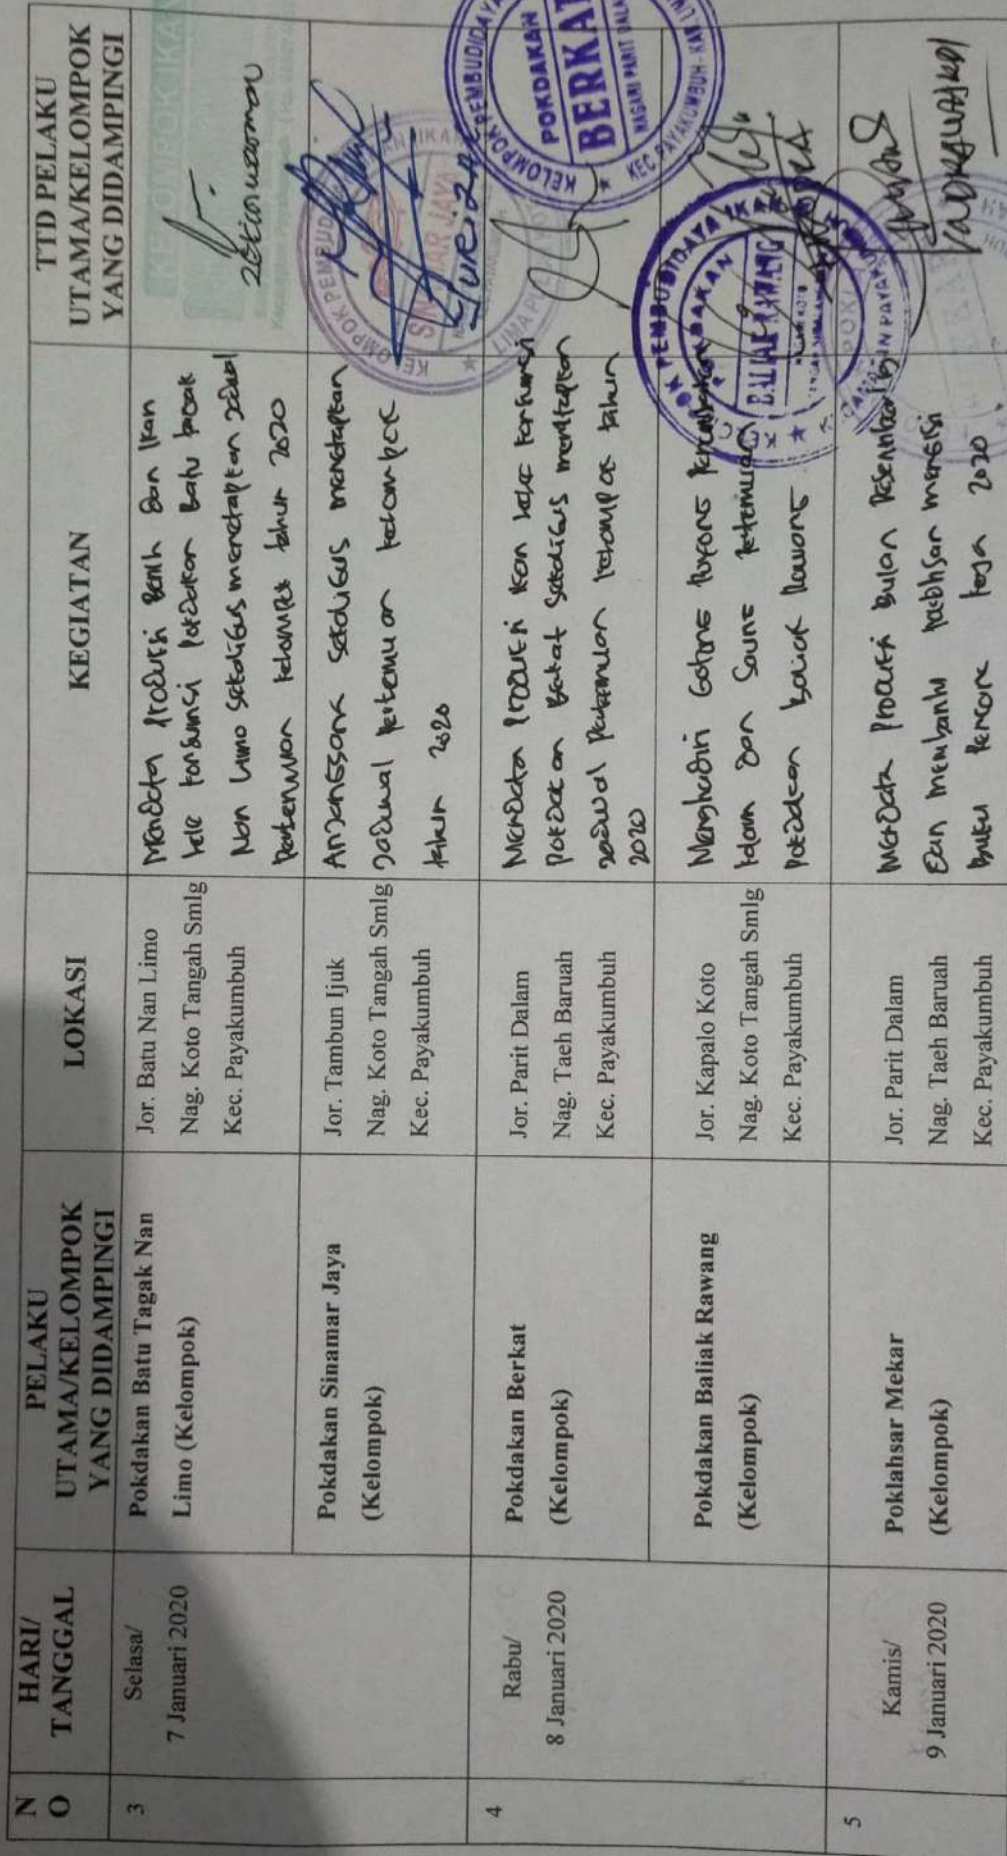 N
O
HARI/
TANGGAL
PELAKU
UTAMA/KELOMPOK
YANG DIDAMPINGI
LOKASI
KEGIATAN
TTD PELAKU
UTAMA/KELOMPOK
YANG DIDAMPINGI
3
Selasa/
7 Januari 2020
Pokdakan Batu Tagak Nan
Limo (Kelompok)
Jor. Batu Nan Limo
Nag. Koto Tangah Smlg
Kec. Payakumbuh
Mendata Produksi Benih dan Ikan
lele konsumsi Pokdakan Batu tagak
Nan Limo sekaligus menetapkan jadwal
Pertemuan kelompok tahun 2020
Pokdakan Sinamar Jaya
(Kelompok)
Jor. Tambun Ijuk
Nag. Koto Tangah Smlg
Kec. Payakumbuh
Anjangsana sekaligus menetapkan
jadwal pertemuan kelompok
tahun 2020
KELOMPOK PEMBUDIDAYA IKAN
SINAMAR JAYA
4
Rabu/
8 Januari 2020
Pokdakan Berkat
(Kelompok)
Jor. Parit Dalam
Nag. Taeh Baruah
Kec. Payakumbuh
Mendata Produksi Ikan lele konsumsi
pokdakan Berkat sekaligus menetapkan
jadwal pertemuan kelompok tahun
2020
KELOMPOK PEMBUDIDAYA
POKDAKAN
BERKAT
NAGARI PARIT DALAM
KEC. PAYAKUMBUH - KAB. LIMA
Pokdakan Baliak Rawang
(Kelompok)
Jor. Kapalo Koto
Nag. Koto Tangah Smlg
Kec. Payakumbuh
Menghadiri Gotong Royong
kolam dan Saung Pertemuan
Pokdakan Baliak Rawang
PEMBUDIDAYA IKAN
POKDAKAN
BALIAK RAWANG
5
Kamis/
9 Januari 2020
Poklahsar Mekar
(Kelompok)
Jor. Parit Dalam
Nag. Taeh Baruah
Kec. Payakumbuh
Mendata Produksi Bulan Desember
dan membantu poklahsar mengisi
Buku Rencana Kerja 2020